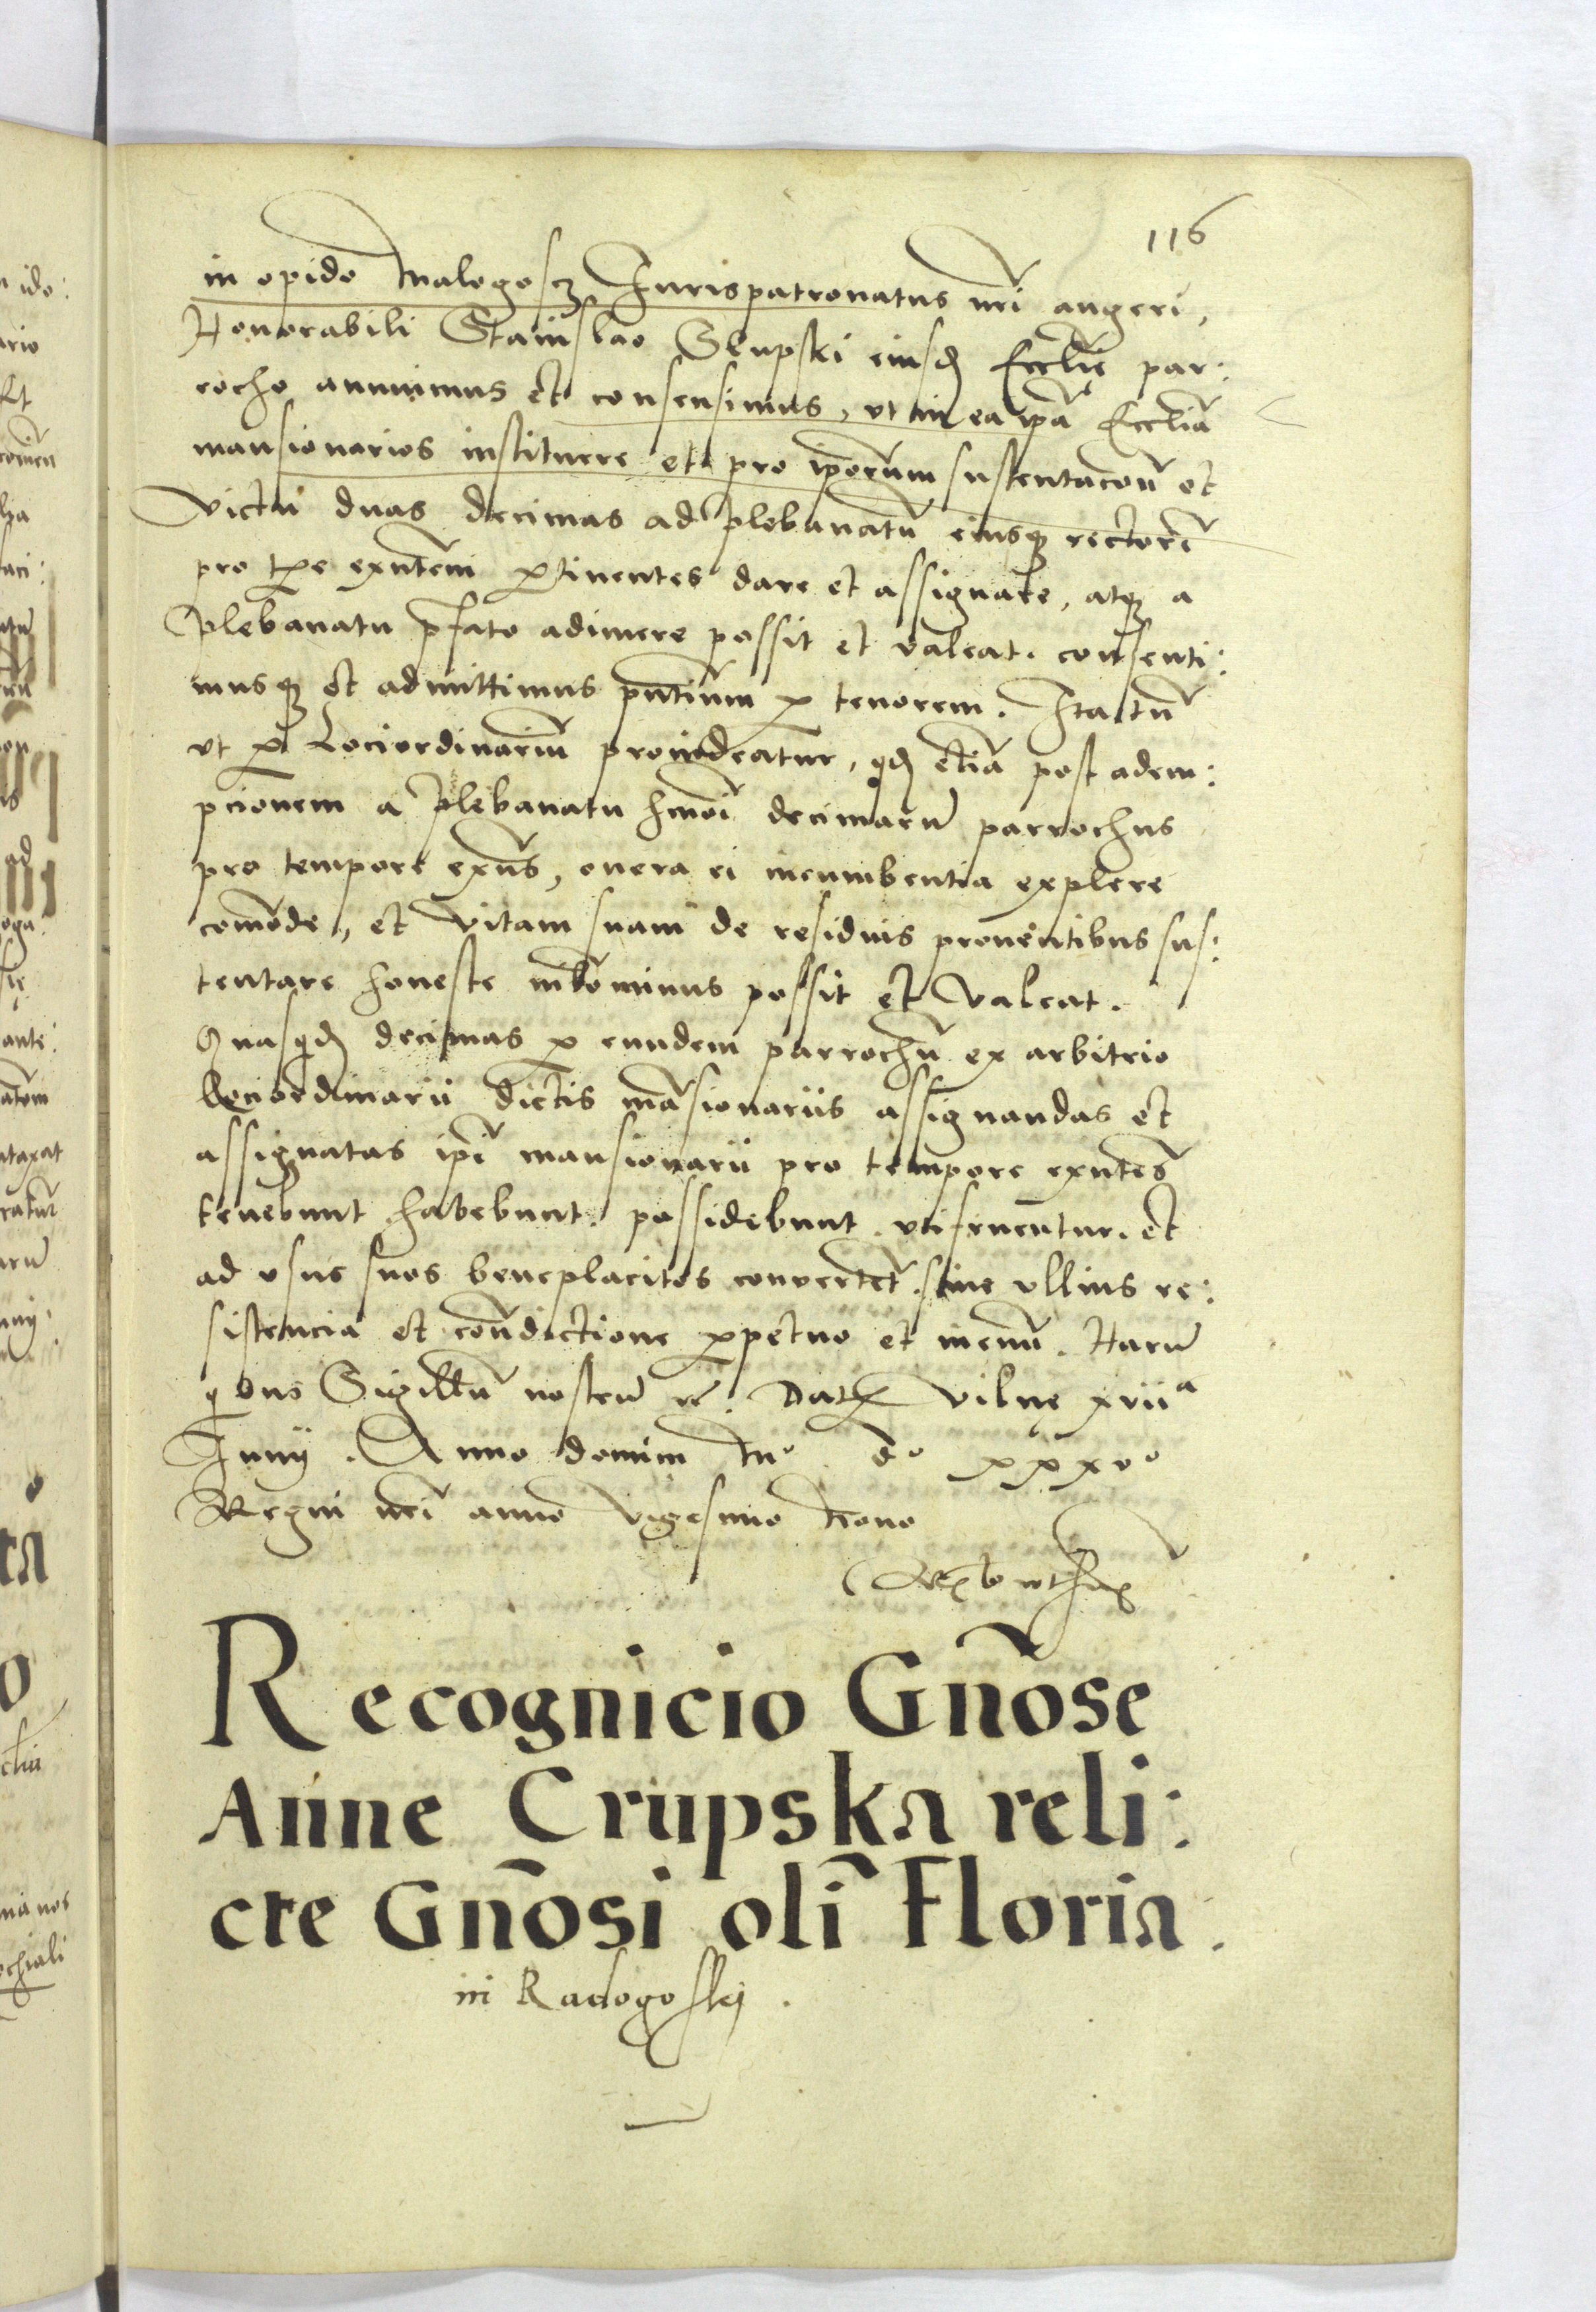 116
in opido Malogoscz Jurispatronatus nr̄i augeri,
Honorabili Stanislao Slupski eiusd Ecclīe par:
rocho annuimus et consensimus, vt in ea ip̄a Ecclīa
mansionarios instituere et pro ip̄orum sustentacōn̄ et
victu duas decimas ad plebanatū eiusq rectorē
pro tp̄e exn̄tem ptinentes dare et assignare, atq a
Plebanatu p̄fato adimere possit et valeat. consenti:
musq et admittimus pn̄tium p tenorem. Ita tn̄
vt p Lociordinariū prouideatur, qd etiā post adem:
pcionem a Plebanatu hmōi decimarū parrochus
pro tempore exn̄s, onera ei incumbentia explere
comode, et vitam suam de residuis prouentibus sus:
tentare honeste nihōminus possit et valeat.
Quasqd decimas p eundem parrochū ex arbitrio
Lociordinarii dictis mā̄sionariis assignandas et
assignatas ip̄i mansionarii pro tempore exn̄tes
tenebunt habebunt. possidebunt. vtifruentur. et
ad vsus suos beneplacitos conuertēt. sine vllius re:
sistencia et con̄dictione ppetuo et in euū. Harū
qbus Sigillū nostrū rē. Dat Vilnę xvii a
Junij. Anno domini Mo do xxxvo
Regni nr̄i anno vigesimo nono
Recognicio Gn̄ose
Anne Crupska reli:
cte Gn̄osi oli̅ Floria.
ni Radogoskj.